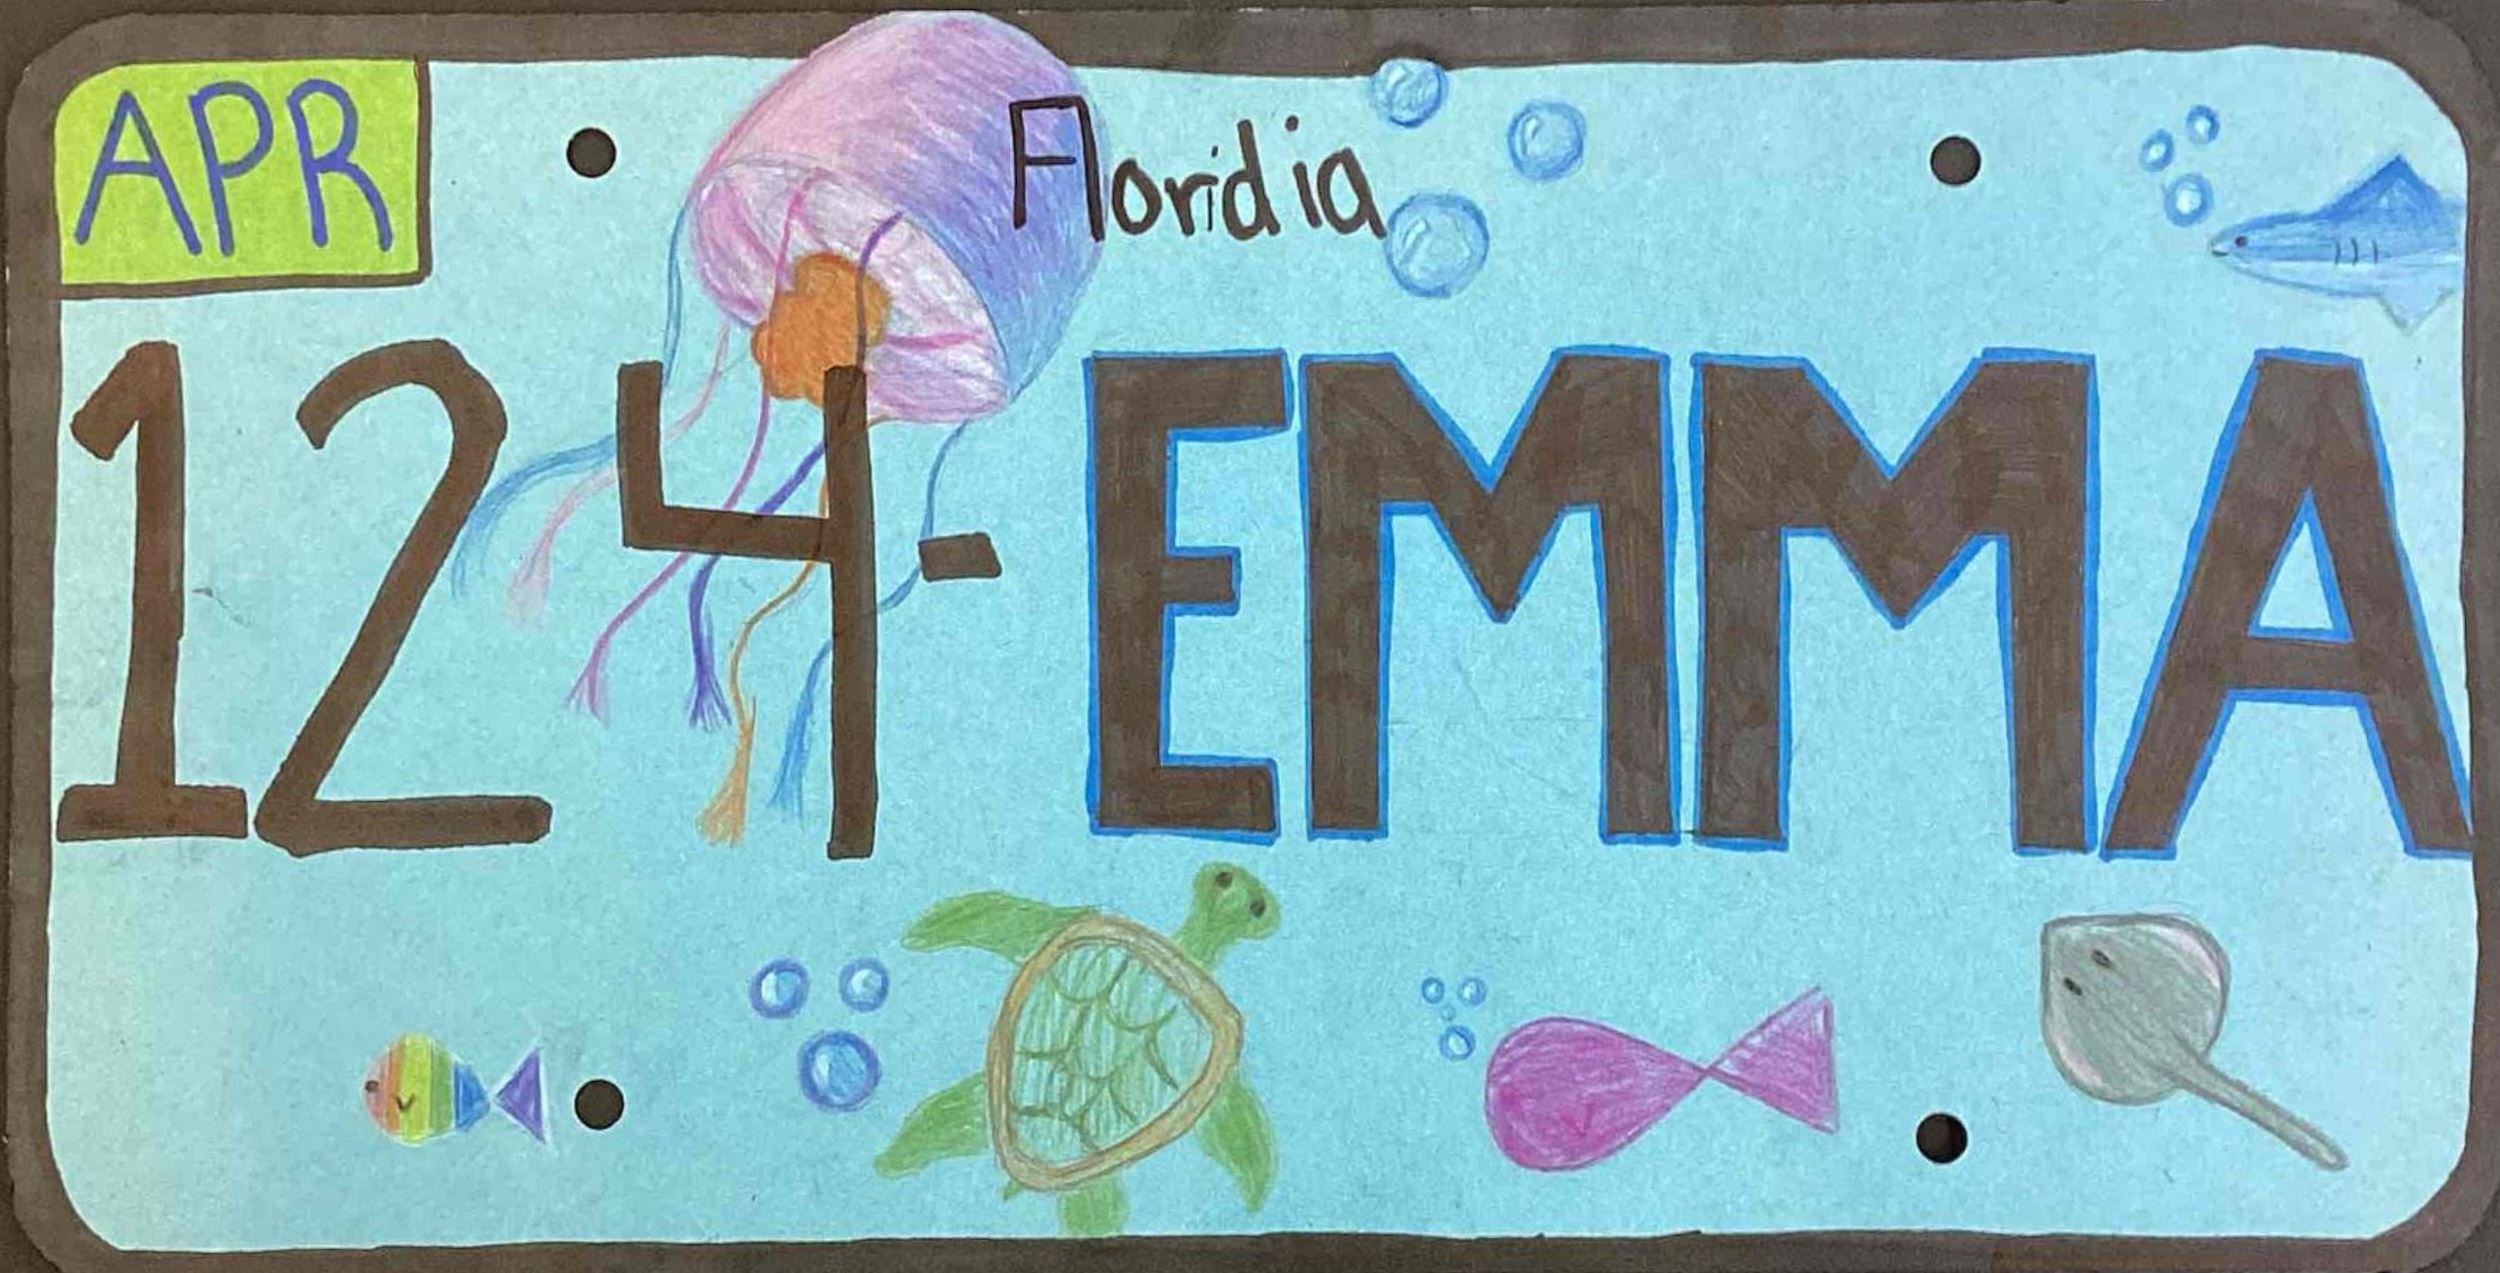 APR
Floridia
124-EMMA